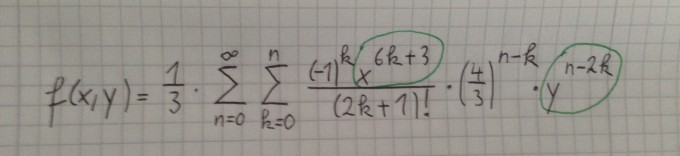 f(x,y) = \frac{1}{3} \cdot \sum_{n=0}^{\infty} \sum_{k=0}^{n} \frac{(-1)^k x^{6k+3}}{(2k+1)!} \cdot \left(\frac{4}{3}\right)^{n-k} \cdot y^{n-2k}